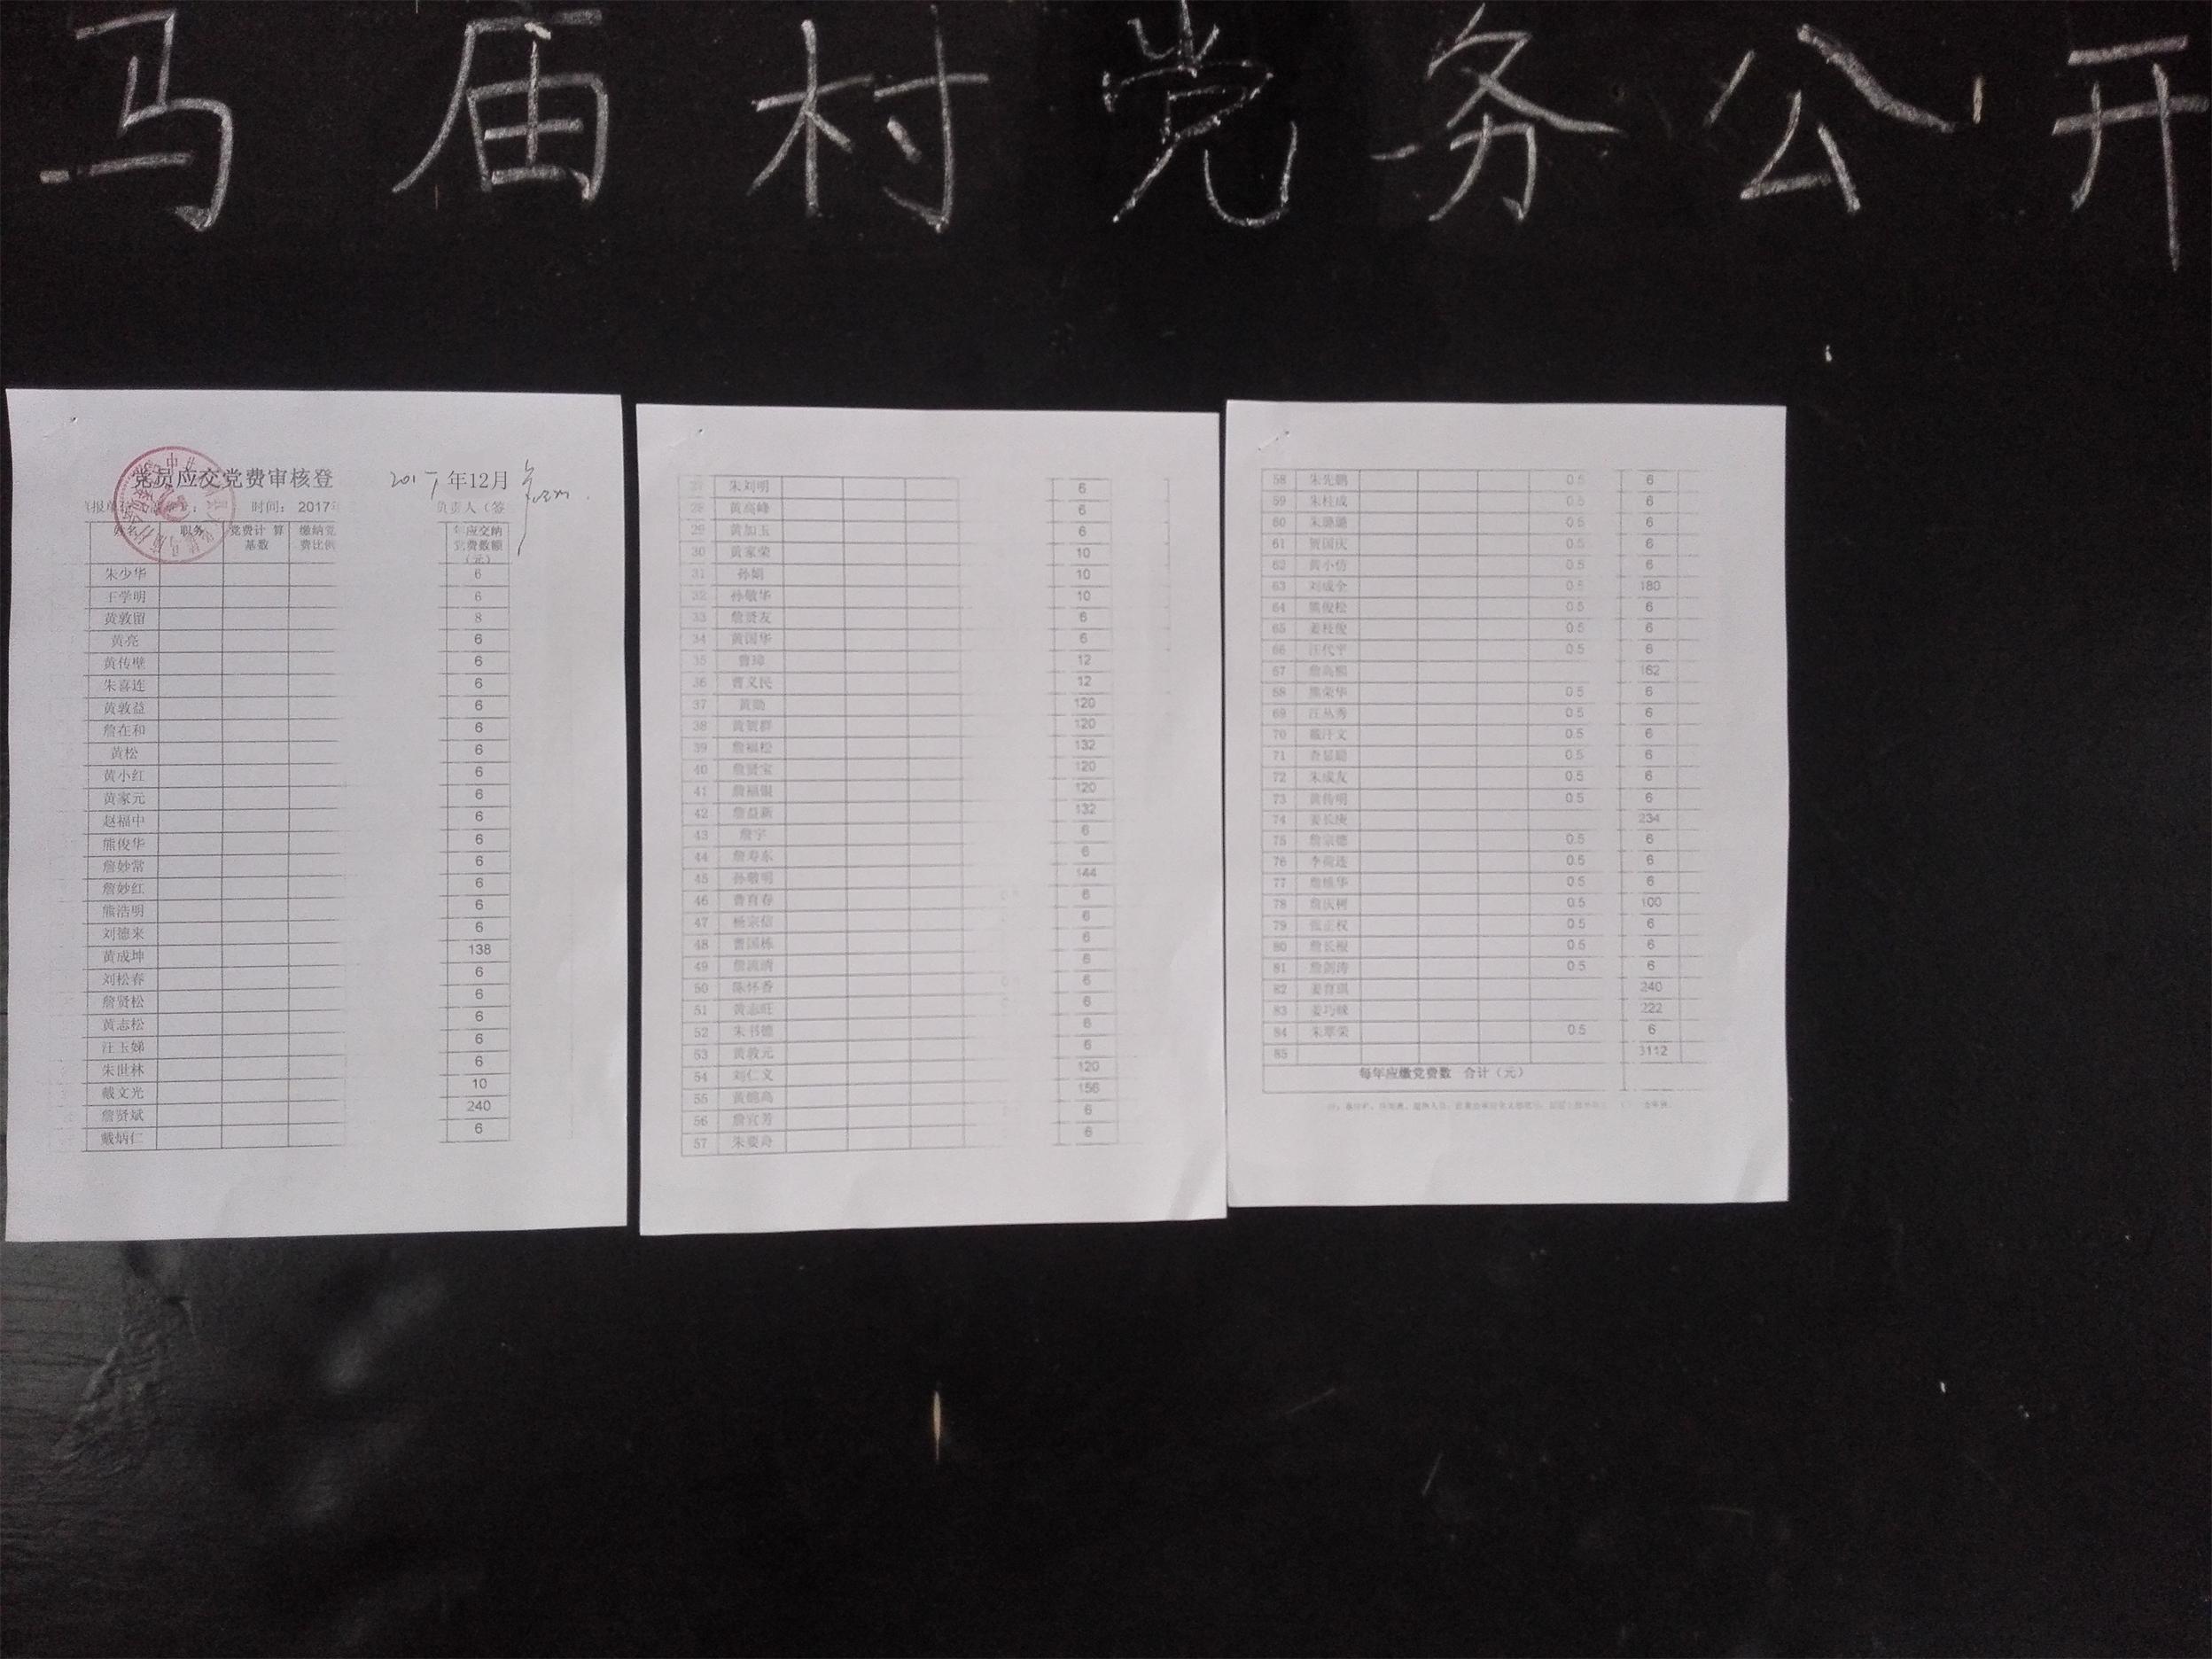 马庙村党务公开
党员应交党费审核登 2017年12月
时间： 2017 负责人（签
姓名 职务 党费计 算基数 缴纳党费比例 应交纳党费数额（元）
朱少华 6
王学明 6
黄敦留 8
黄亮 6
黄传壁 6
朱喜连 6
黄敦益 6
詹在和 6
黄松 6
黄小红 6
黄家元 6
赵福中 6
熊俊华 6
詹妙常 6
詹妙红 6
熊浩明 6
刘德来 6
黄成坤 138
刘松春 6
詹贤松 6
黄志松 6
汪玉娣 6
朱世林 6
戴文光 10
詹贤斌 240
戴炳仁 6
朱刘明 6
28 黄高峰 6
29 黄加玉 6
30 黄家荣 10
31 孙娟 10
32 孙敬华 10
33 詹贤友 6
34 黄国华 6
35 曹璋 12
36 曹义民 12
37 黄勋 120
38 黄贺群 120
39 詹福松 132
40 詹贤宝 120
41 詹福银 120
42 詹益新 132
43 詹宇 6
44 詹寿东 6
45 孙敬明 144
46 曹育春 6
47 杨宗信 6
48 曹国栋 6
49 6
50 陈怀香 6
51 黄志旺 6
52 朱书德 6
53 黄敦元 6
54 刘仁义 120
55 156
56 詹宜芳 6
57 6
58 朱先鹏 0.5 6
59 朱柱成 0.5 6
60 朱璐璐 0.5 6
61 贺国庆 0.5 6
62 黄小仿 0.5 6
63 刘成全 0.5 180
64 熊俊松 0.5 6
65 姜枝俊 0.5 6
66 汪代平 0.5 6
67 162
68 熊荣华 0.5 6
69 汪丛秀 0.5 6
70 戴汗文 0.5 6
71 0.5 6
72 朱成友 0.5 6
73 黄传明 0.5 6
74 姜长庚 234
75 詹宗德 0.5 6
76 李荷莲 0.5 6
77 0.5 6
78 詹庆树 0.5 100
79 张正权 0.5 6
80 詹长根 0.5 6
81 詹剑涛 0.5 6
82 姜育琪 240
83 222
84 朱翠荣 0.5 6
85 3112
每年应缴党费数 合计（元）